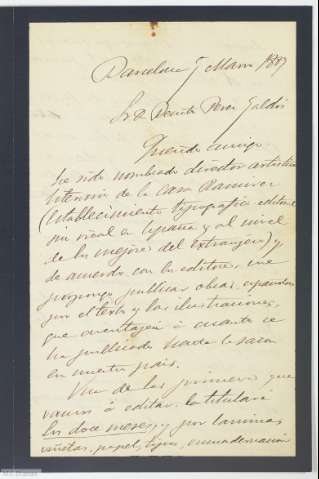 Barcelona 7 Marzo 1887
Sr D. Benito Perez Galdós
Querido amigo:
He sido nombrado director artistico
literario de la casa Ramirez
(establecimiento tipografico editorial
sin rival en España y al nivel
de los mejores del extranjero) y
de acuerdo con los editores, me
propongo publicar obras,
por el texto y las ilustraciones,
que aventajen à cuanto se
ha publicado hasta la fecha
en nuestro pais.
Una de las primeras que
vamos à editar, la titulará
los doce meses, y por laminas
viñetas, papel, tipos, encuadernación